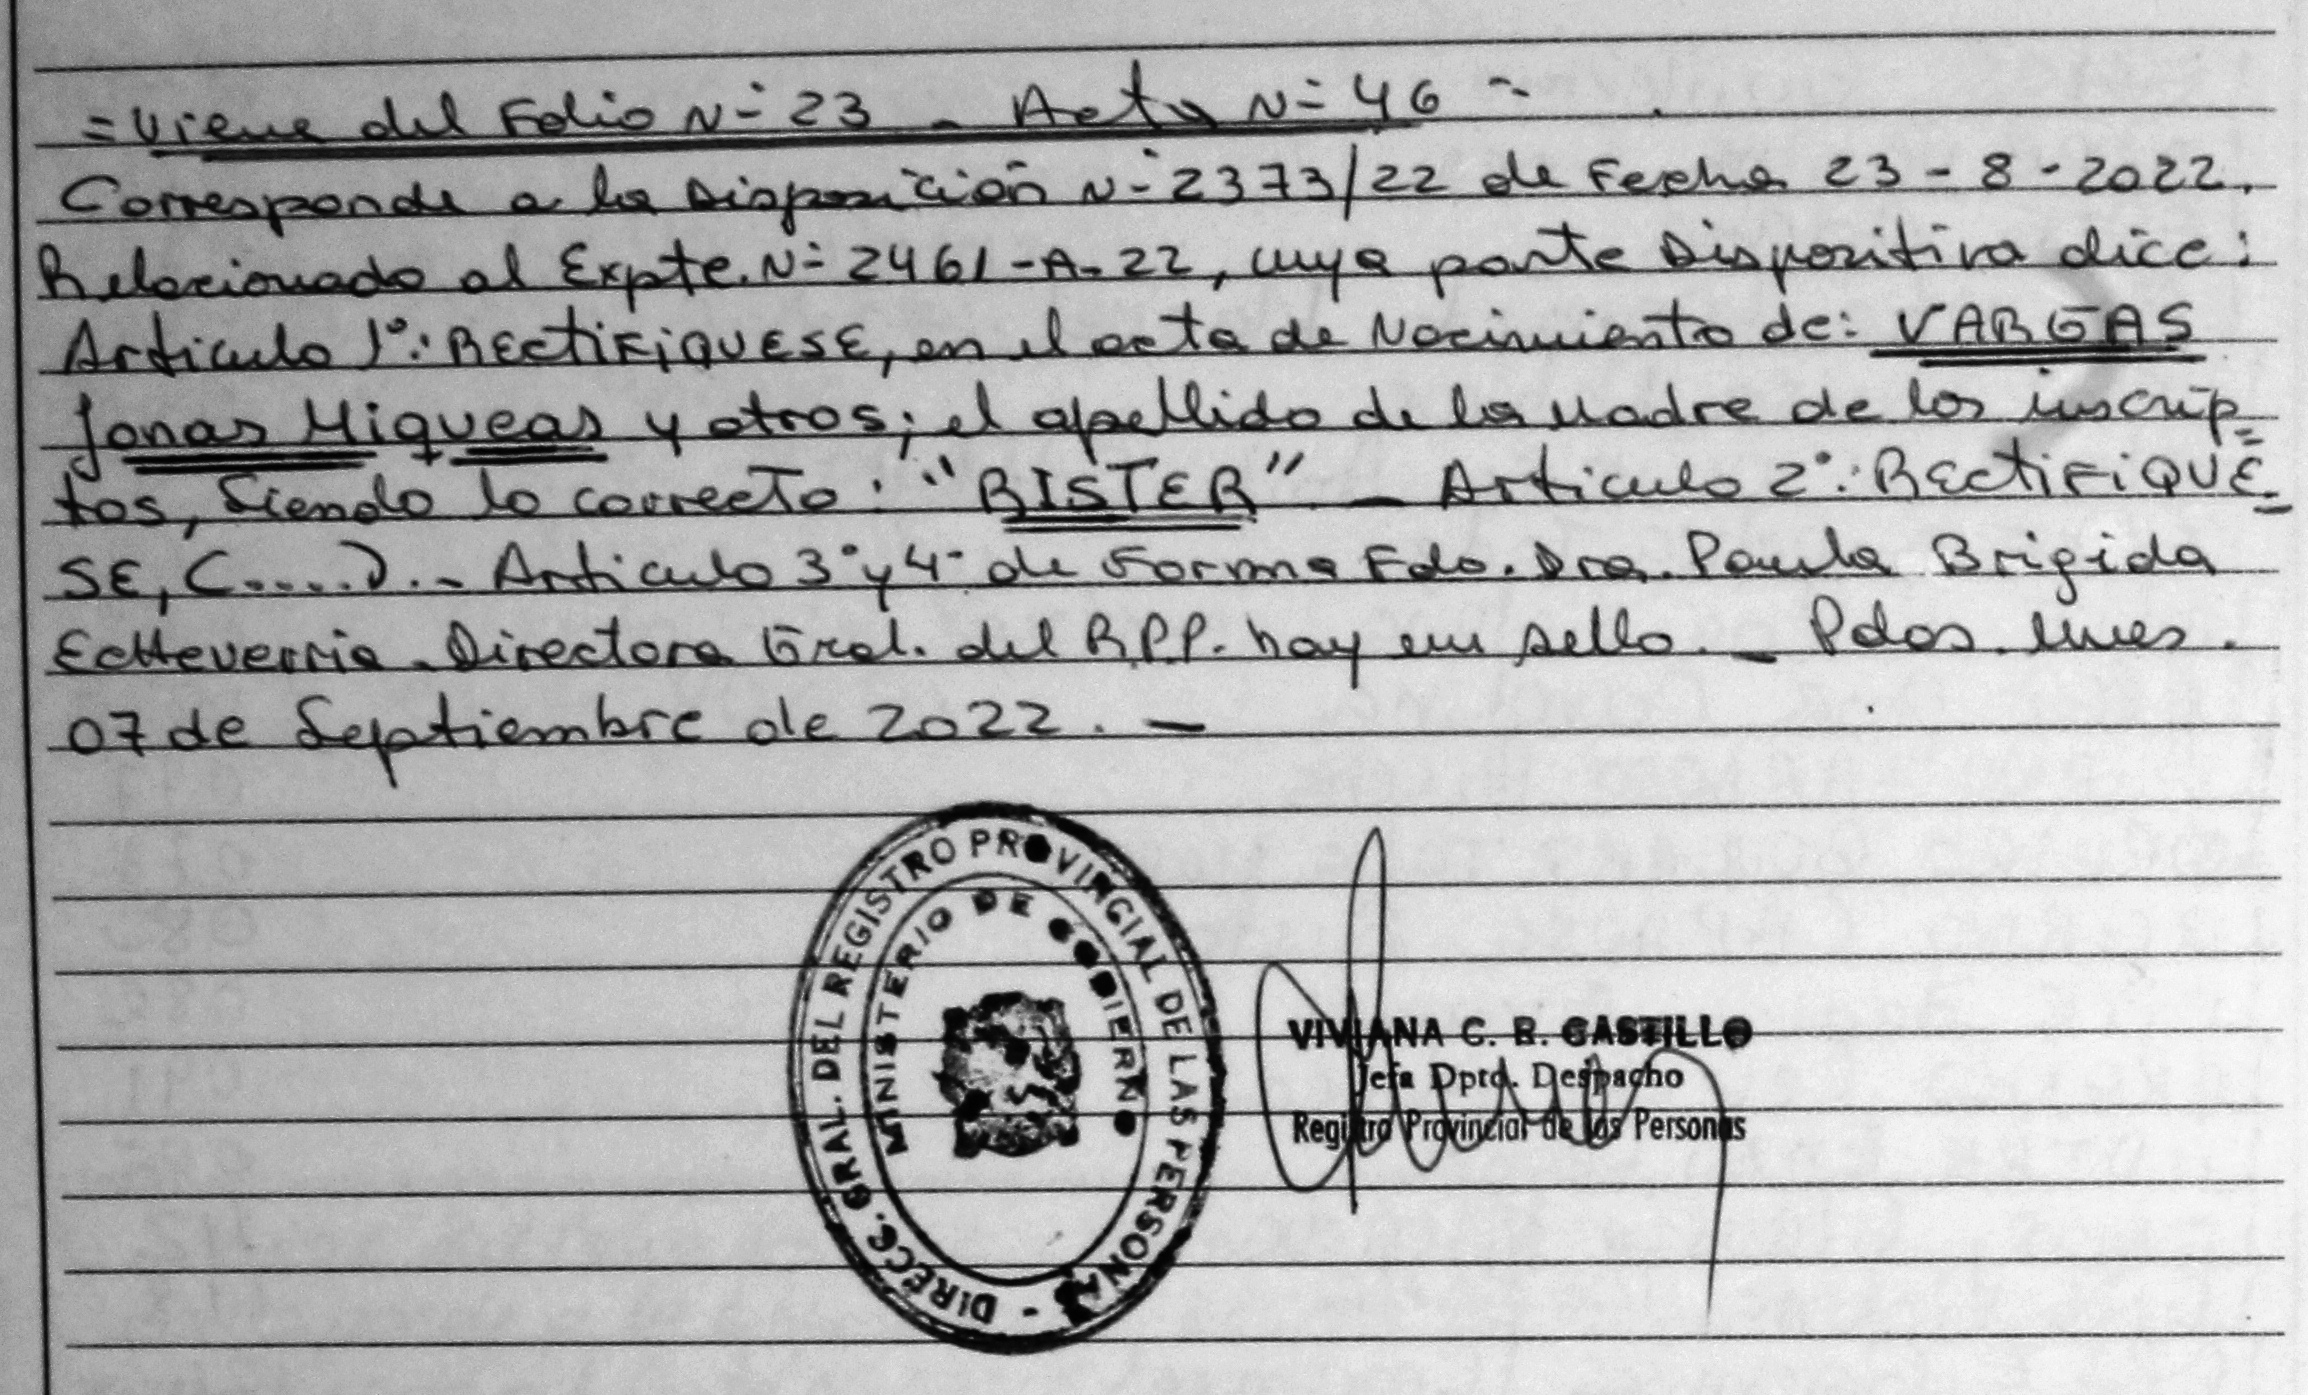 = Viene del Folio Nº 23 - Acta Nº 46 =
Corresponde a la Disposición Nº 2373/22 de Fecha 23-8-2022.
Relacionado al Expte. Nº 2461-A-22, cuya parte Dispositiva dice:
Articulo 1º: RECTIFIQUESE, en el acta de Nacimiento de: VARGAS
Jonas Miqueas y otros; el apellido de la Madre de los inscrip=
tos, Siendo lo correcto: "RISTER" - Articulo 2º: RECTIFIQUE=
SE, (.....).- Articulo 3º y 4º de Forma Fdo. Dra. Paula Brigida
Echeverria - Directora Gral. del RPP. hay un sello. - Pdas. Mnes.
07 de Septiembre de 2022. -
DIRECC. GRAL. DEL REGISTRO PROVINCIAL DE LAS PERSONAS -
MINISTERIO DE GOBIERNO
VIVIANA C. B. CASTILLO
Jefa Dpto. Despacho
Registro Provincial de las Personas